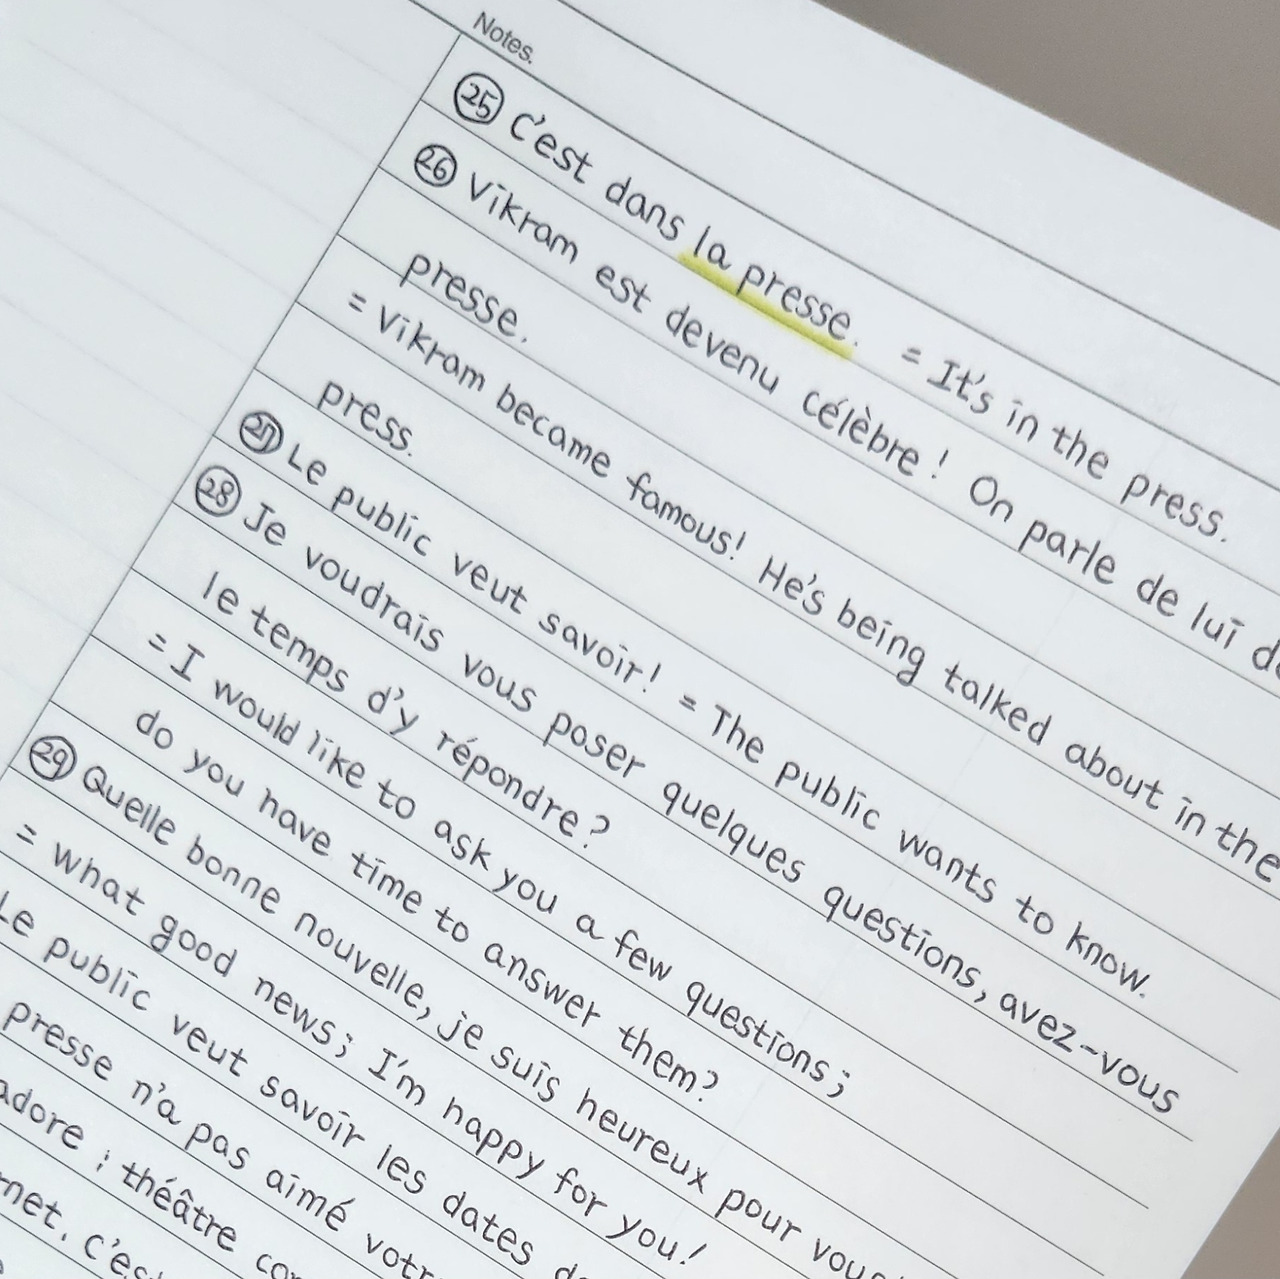 Notes.
25 C'est dans la presse. = It's in the press.
26 Vikram est devenu célèbre ! On parle de lui
presse.
= Vikram became famous! He's being talked about in the
press.
27 Le public veut savoir! = The public wants to know.
28 Je voudrais vous poser quelques questions, avez-vous
le temps d'y répondre ?
= I would like to ask you a few questions;
do you have time to answer them?
29 Quelle bonne nouvelle, je suis heureux pour
= What good news; I'm happy for you!
Le public veut savoir les dates
presse n'a pas aimé
adore : théâtre